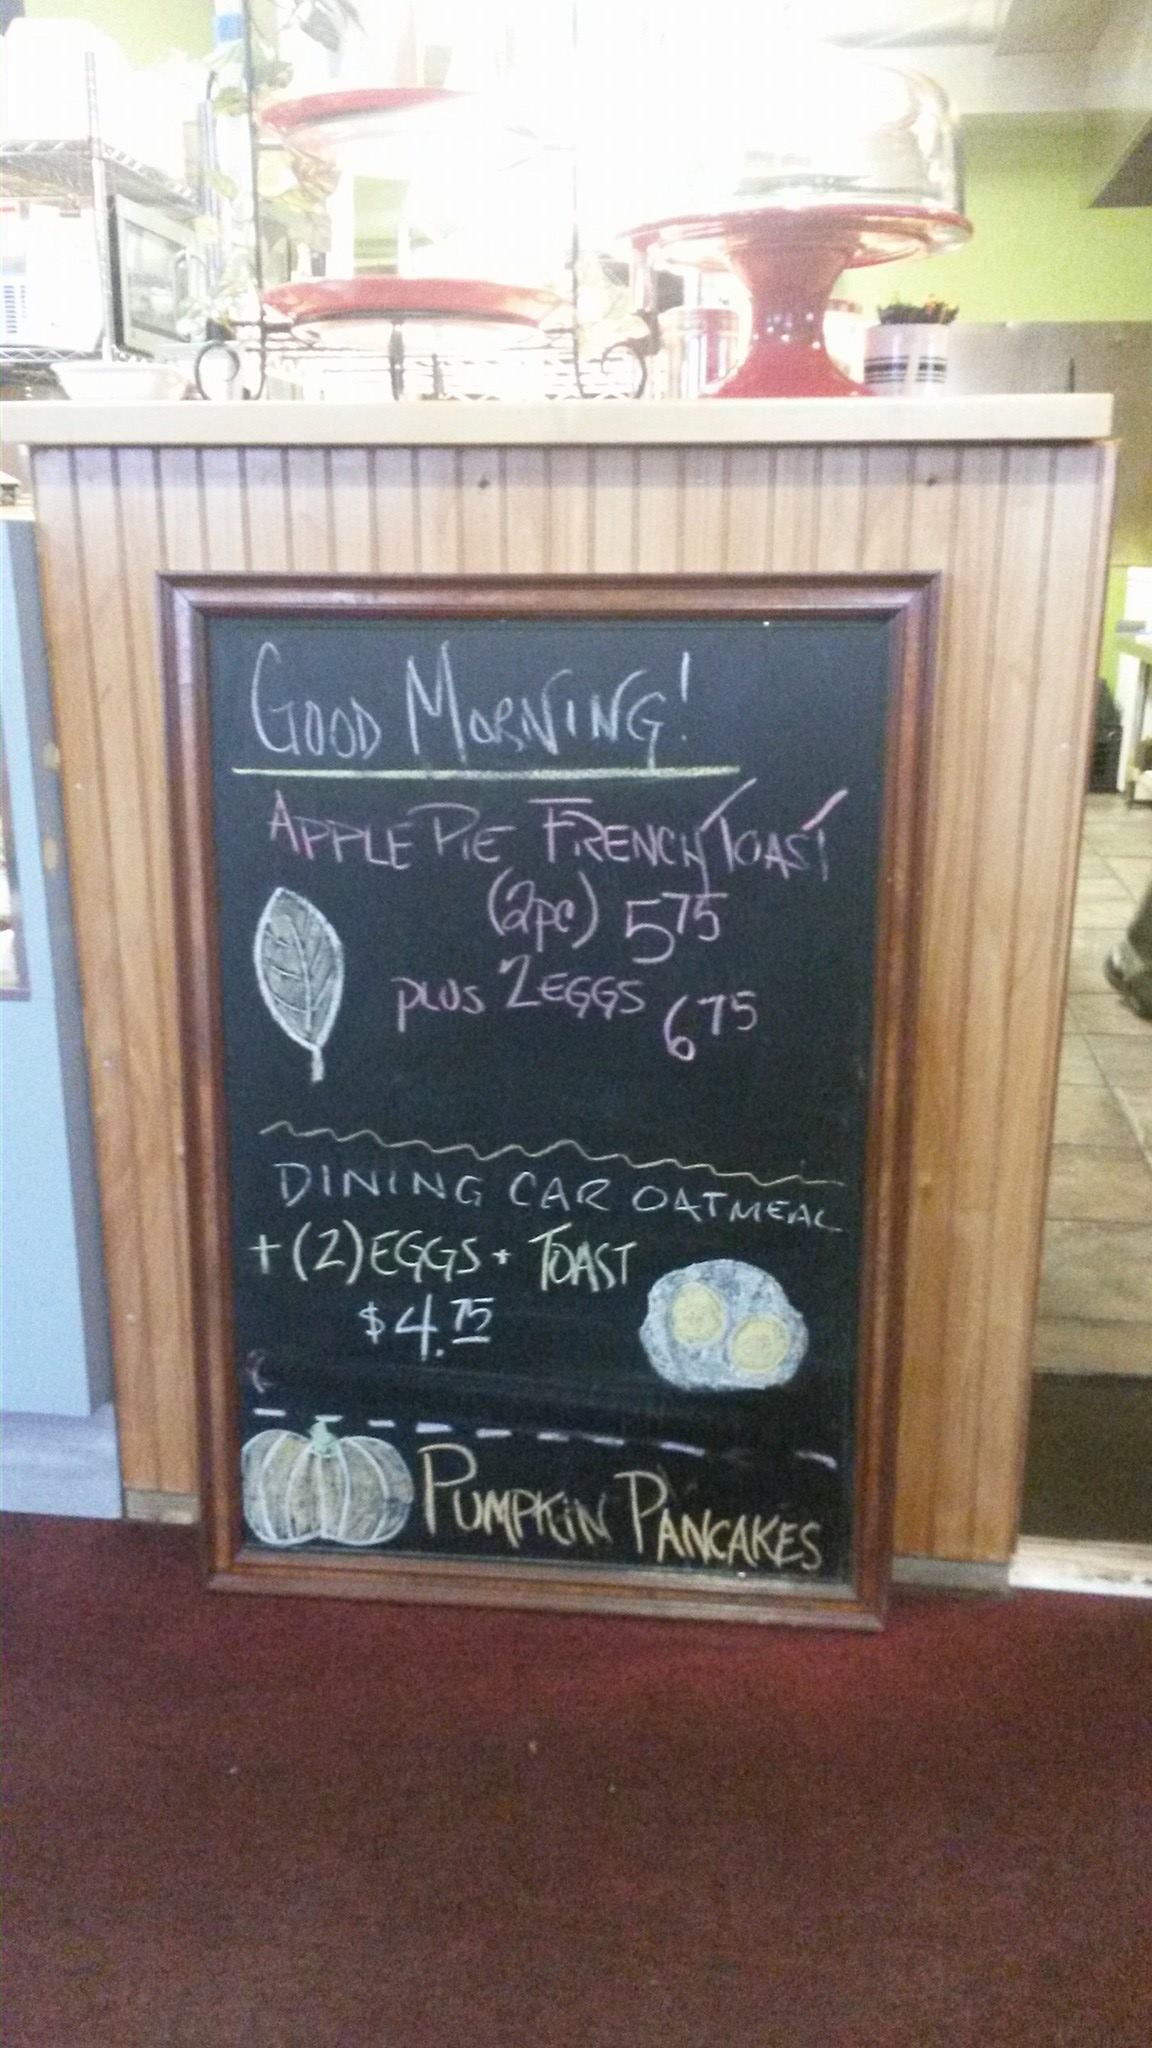 GOOD MORNING!
APPLE PIE FRENCH TOAST
(2pc) 5 75
plus 2 EGGS 6 75
DINING CAR OATMEAL
+ (2) EGGS + TOAST
$4.75
PUMPKIN PANCAKES